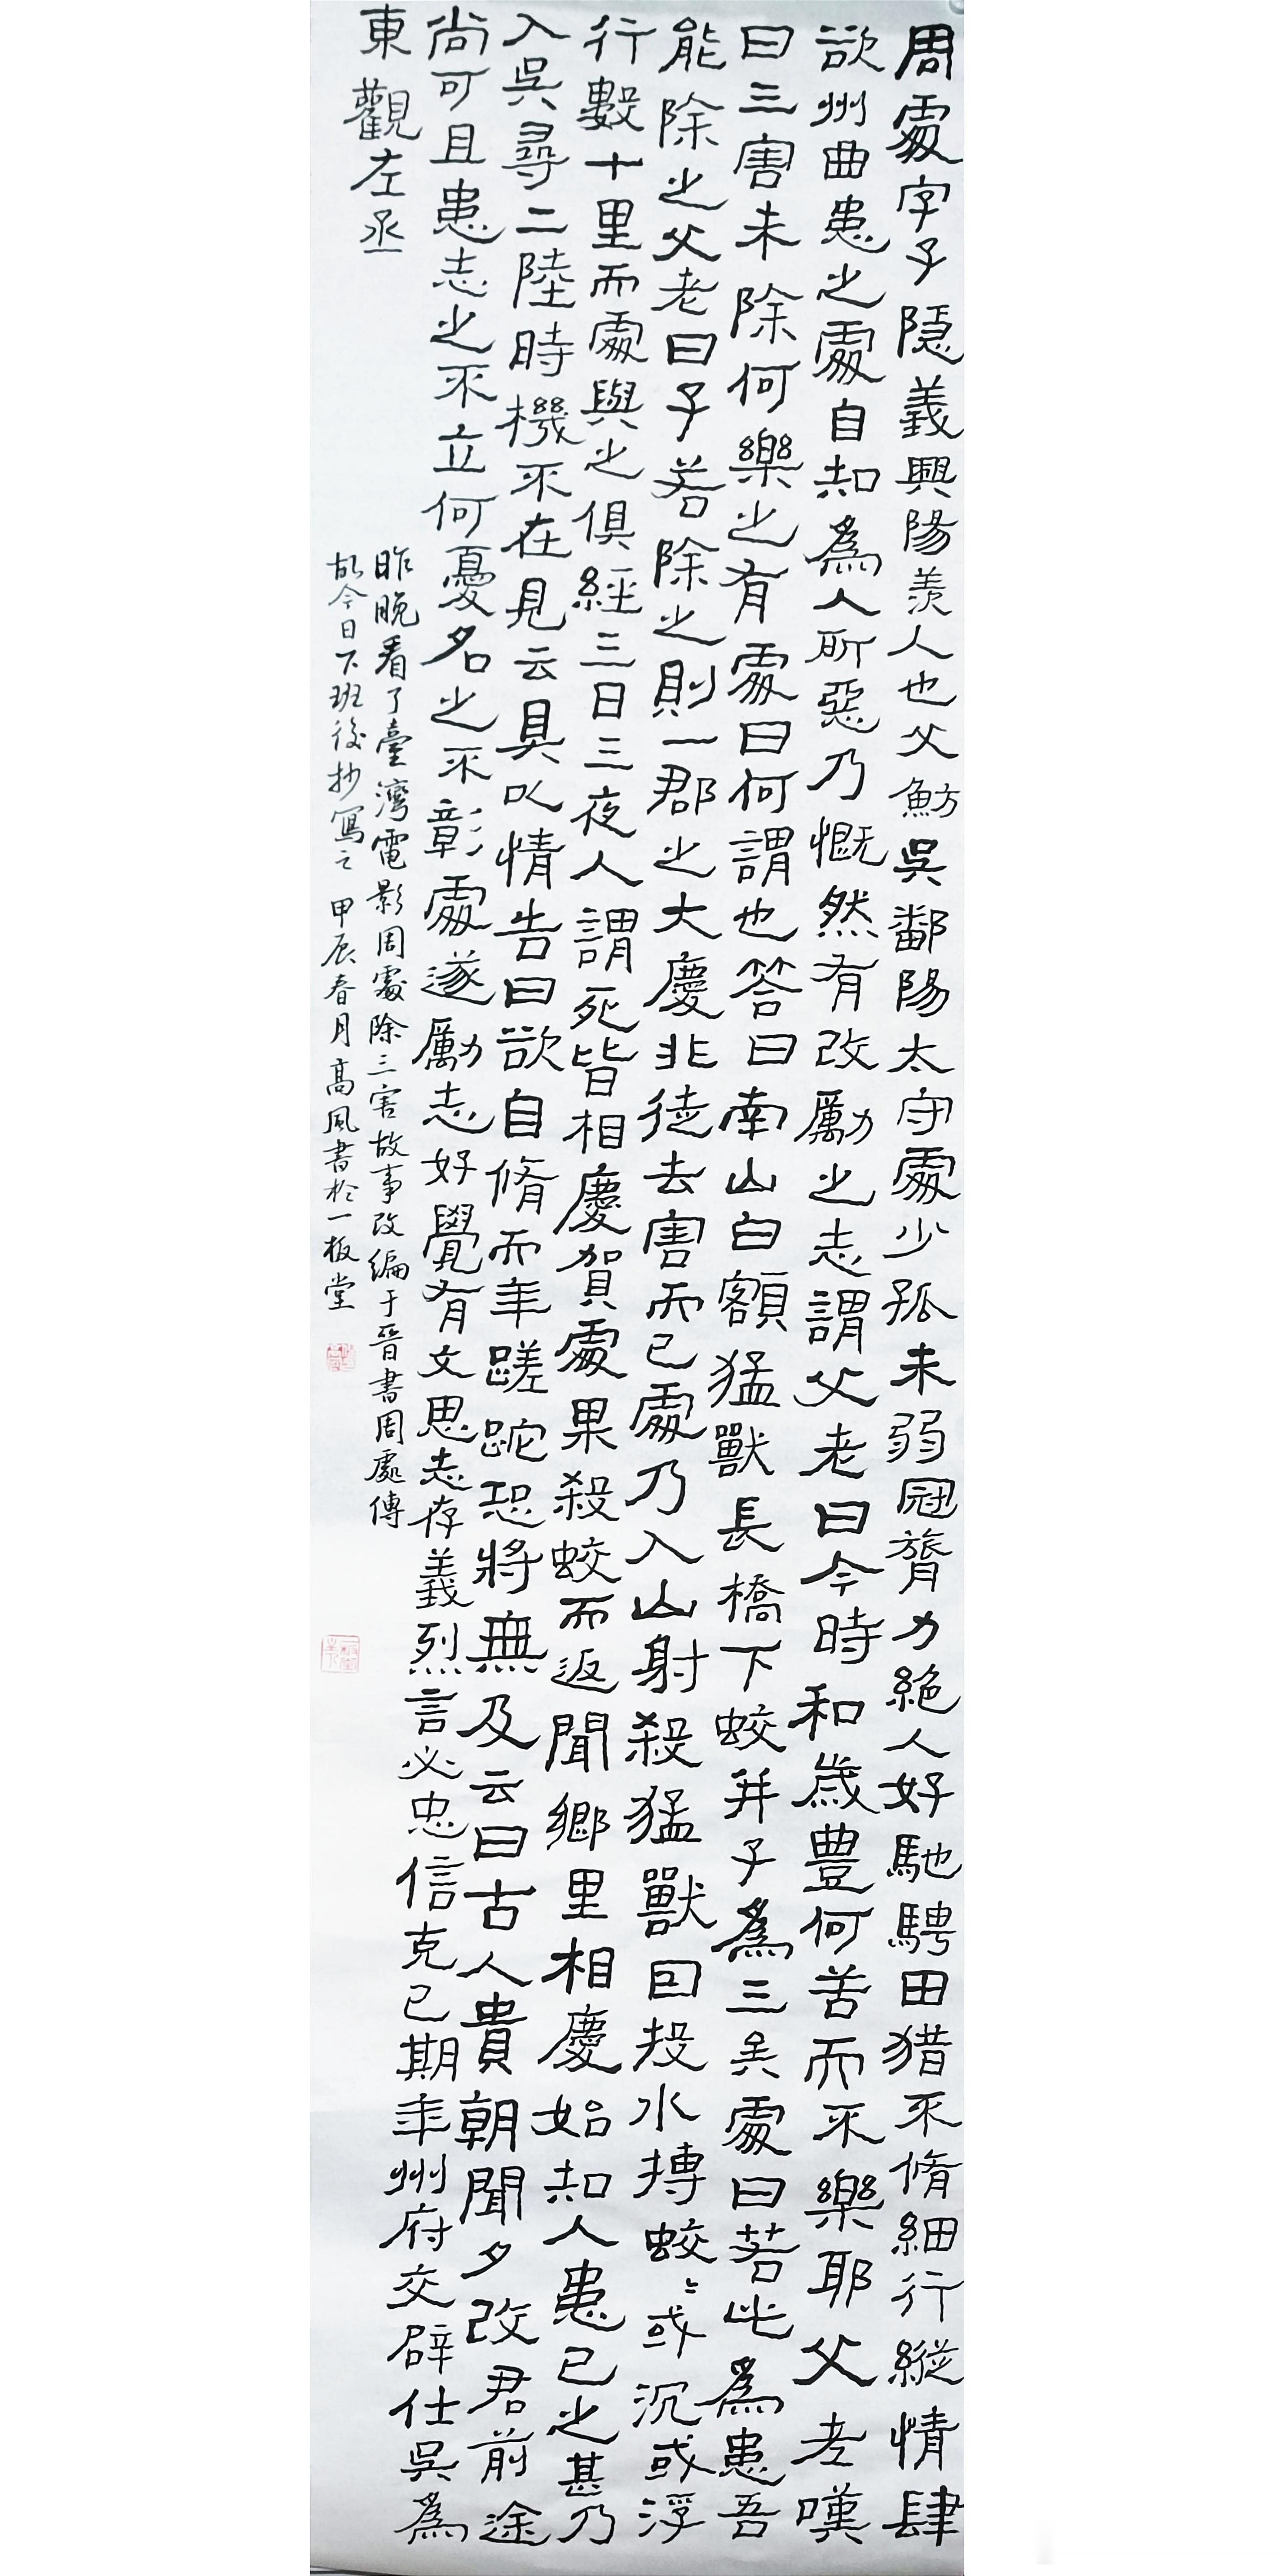 周處字子隱義興陽羨人也父魴吳鄱陽太守處少孤未弱冠膂力絕人好馳騁田猎不脩細行縱情肆
欲州曲患之處自知為人所惡乃慨然有改勵之志謂父老曰今時和歲豐何苦而不樂耶父老嘆
曰三害未除何樂之有處曰何謂也答曰南山白額猛獸長橋下蛟并子為三矣處曰若此為患吾
能除之父老曰子若除之則一郡之大慶非徒去害而已處乃入山射殺猛獸因投水摶蛟〻或沉或浮
行數十里而處與之俱經三日三夜人謂死皆相慶賀處果殺蛟而返聞鄉里相慶始知人患己之甚乃
入吳尋二陸時機不在見云具以情告曰欲自脩而年蹉跎恐將無及云曰古人貴朝聞夕改君前途
尚可且患志之不立何憂名之不彰處遂勵志好覺有文思志存義烈言必忠信克己期年州府交辟仕吳為
東觀左丞
昨晚看了臺灣電影周處除三害故事改編于晉書周處傳
故今日下班後抄寫之 甲辰春月高風書於一板堂